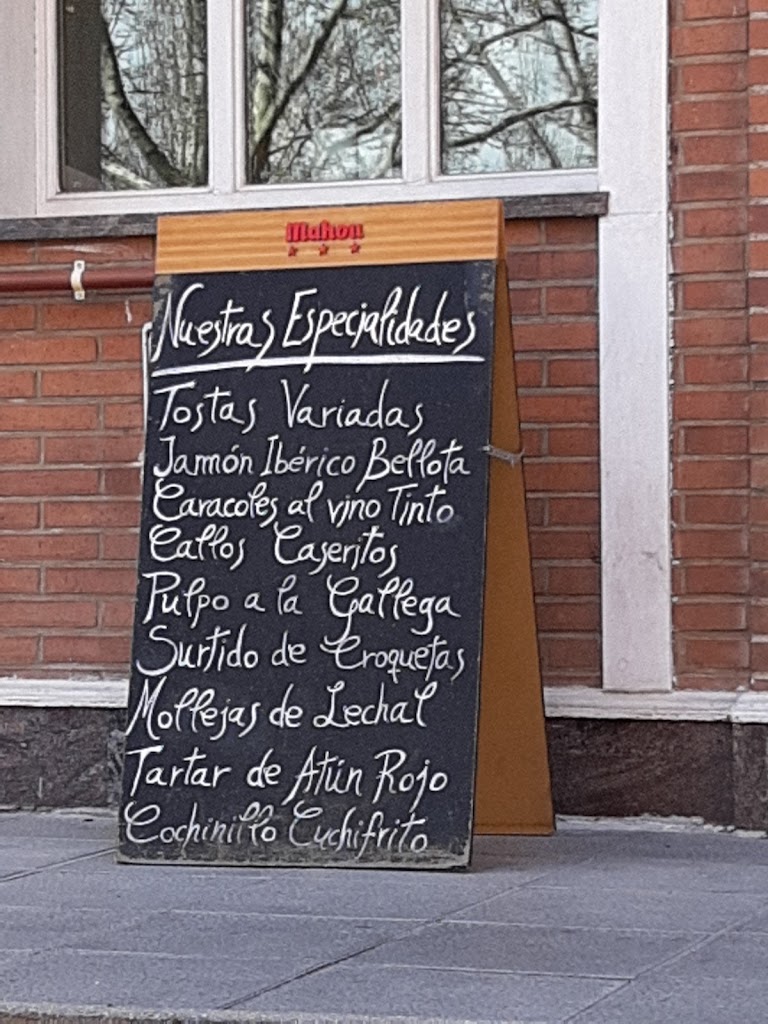 Mahou
Nuestras Especialidades
Tostas Variadas
Jamón Ibérico Bellota
Caracoles al vino Tinto
Callos Caseritos
Pulpo a la Gallega
Surtido de Croquetas
Mollejas de Lechal
Tartar de Atún Rojo
Cochinillo Cuchifrito